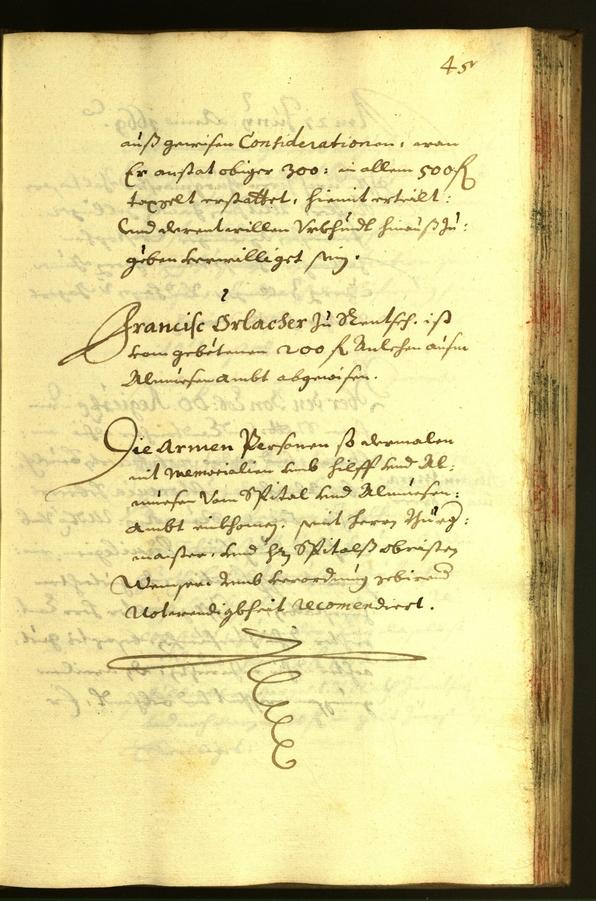 45r
auß gewisen Considerationen, wan
Er anstat obiger 300: in allem 500 fl
doppelt erstattet, hiemit erteilt:
Und derentwillen Urkhundt hinauß zu:
geben verwilliget sein.
Francisc Orlacher zu Rentsch. ist
vom gebetenen 200 fl Anlehen aufm
Almuesen Ambt abgewisen.
Die Armen Personen so dermalen
mit Memorialien umb hilff und Al:
muesen vom Spital und Almuesen:
Ambt einkhomen, seint Herrn Burg:
maister, und Hrn Spitalß obristen
umb verordnung gebirend
Notwendigkheit recomendiert.